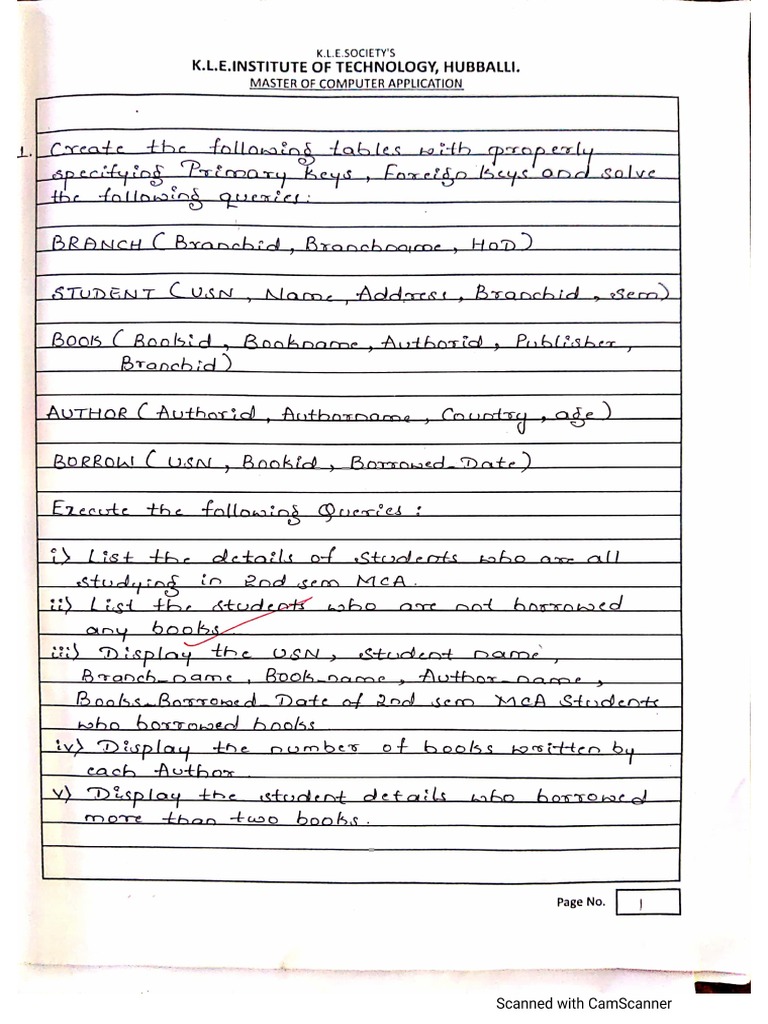 K.L.E.SOCIETY'S
K.L.E.INSTITUTE OF TECHNOLOGY, HUBBALLI.
MASTER OF COMPUTER APPLICATION
1. Create the following tables with properly
specifying Primary keys, Foreign keys and solve
the following queries:
BRANCH (Branchid, Branchname, HOD)
STUDENT (USN, Name, Address, Branchid, sem)
BOOK (Bookid, Bookname, Authorid, Publisher,
Branchid)
AUTHOR (Authorid, Authorname, Country, age)
BORROW (USN, Bookid, Borrowed_Date)
Execute the following Queries:
i) List the details of Students who are all
studying in 2nd sem MCA.
ii) List the students who are not borrowed
any books.
iii) Display the USN, Student name,
Branch_name, Book_name, Author_name,
Books_Borrowed_Date of 2nd sem MCA Students
who borrowed books
iv) Display the number of books written by
each Author.
v) Display the student details who borrowed
more than two books.
Page No. 1
Scanned with CamScanner